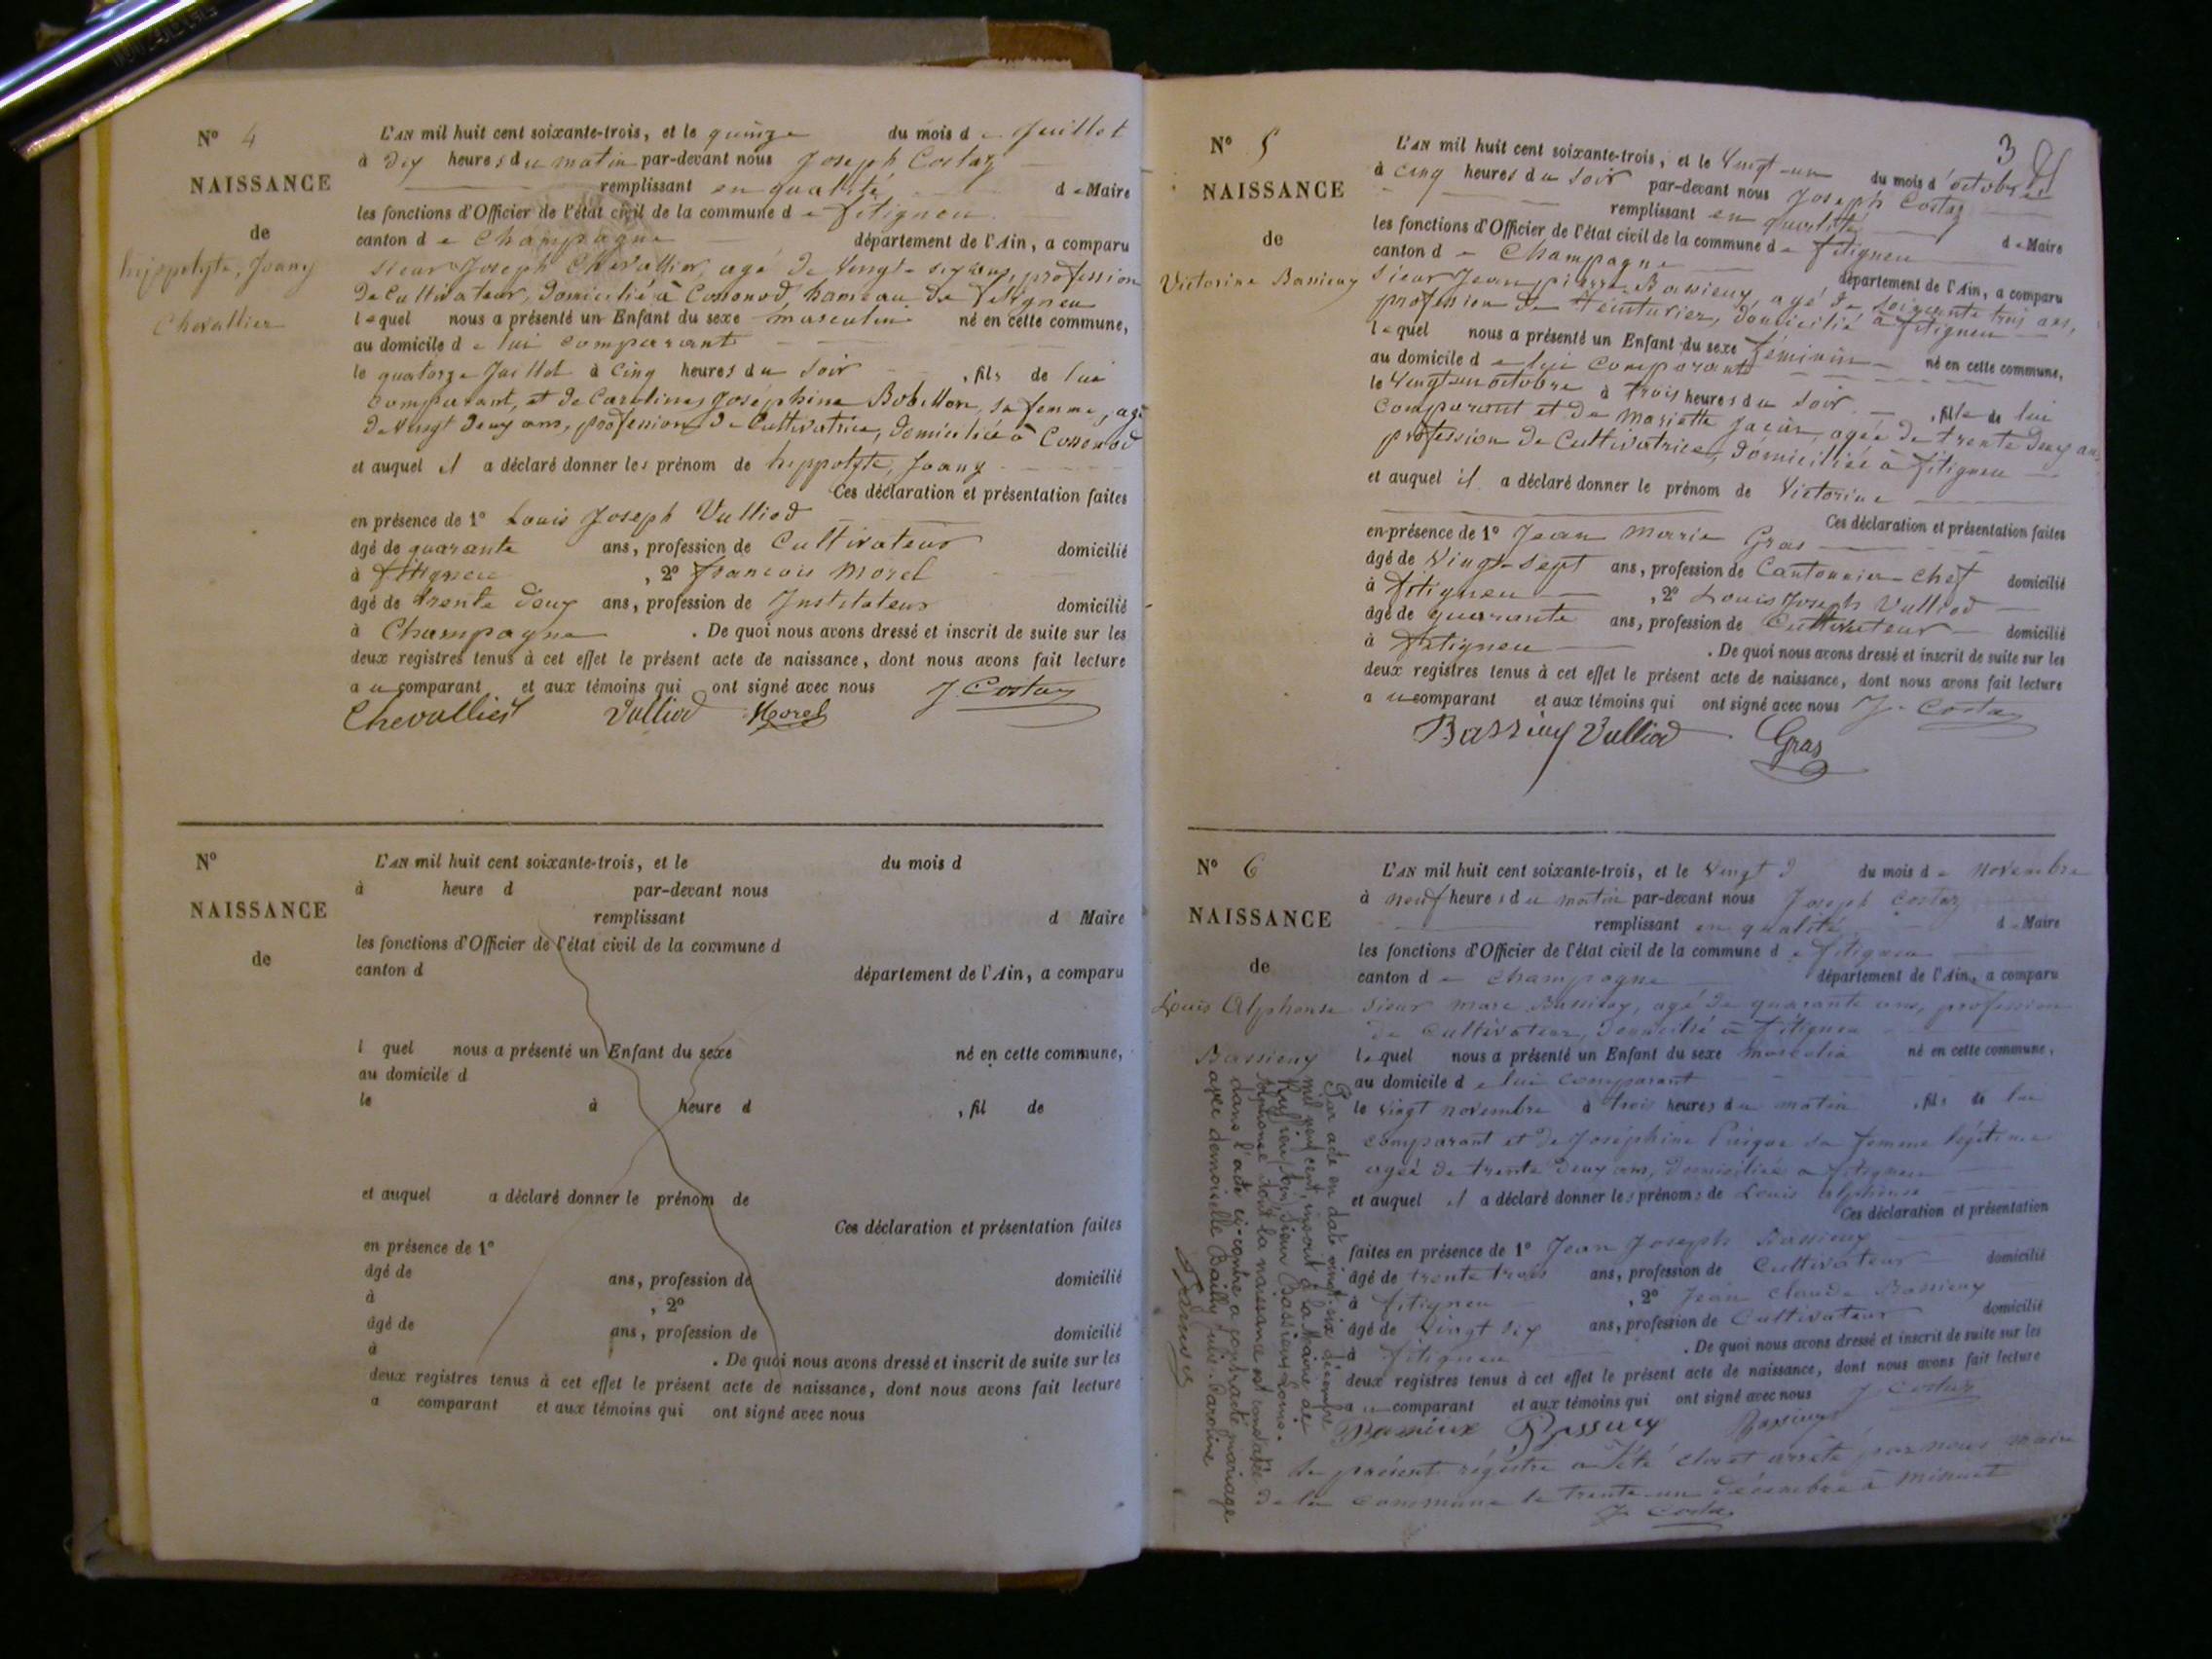 N° 4
NAISSANCE
de
hippolyte, Joany
Chevallier
L'AN mil huit cent soixante-trois, et le quinze du mois de Juillet
à dix heures du matin par-devant nous Joseph Costaz
remplissant en qualité de Maire
les fonctions d'Officier de l'état civil de la commune de fitignieu
canton de Champagne département de l'Ain, a comparu
sieur Joseph Chevallier, agé de vingt-six ans, profession
de Cultivateur, domicilié à Cossonod, hameau de fitignieu
lequel nous a présenté un Enfant du sexe masculin né en cette commune,
au domicile de lui comparant
le quatorze Juillet à cinq heures du soir , fils de lui
comparant, et de Caroline, Joséphine Bobillon, sa femme, agé
de vingt deux ans, profession de Cultivatrice, domiciliée à Cossonod
et auquel il a déclaré donner les prénom de hippolyte, Joany
Ces déclaration et présentation faites
en présence de 1° Louis Joseph Vulliod
âgé de quarante ans, profession de Cultivateur domicilié
à fitignieu , 2° francois Morel
âgé de trente deux ans, profession de Instituteur domicilié
à Champagne . De quoi nous avons dressé et inscrit de suite sur les
deux registres tenus à cet effet le présent acte de naissance, dont nous avons fait lecture
au comparant et aux témoins qui ont signé avec nous J. Costaz
Chevallier Vulliod Morel
N°
NAISSANCE
de
L'AN mil huit cent soixante-trois, et le du mois d
à heure d par-devant nous
remplissant d Maire
les fonctions d'Officier de l'état civil de la commune d
canton d département de l'Ain, a comparu
l quel nous a présenté un Enfant du sexe né en cette commune,
au domicile d
le à heure d , fil de
et auquel a déclaré donner le prénom de
Ces déclaration et présentation faites
en présence de 1°
âgé de ans, profession de domicilié
à , 2°
âgé de ans, profession de domicilié
à . De quoi nous avons dressé et inscrit de suite sur les
deux registres tenus à cet effet le présent acte de naissance, dont nous avons fait lecture
a comparant et aux témoins qui ont signé avec nous
3
N° 5
NAISSANCE
de
Victorine Bassieux
L'AN mil huit cent soixante-trois, et le vingt-un du mois d'octobre
à cinq heures du soir par-devant nous Joseph Costaz
remplissant en qualité de Maire
les fonctions d'Officier de l'état civil de la commune de fitignieu
canton de Champagne département de l'Ain, a comparu
sieur Jean pierre Bassieux, agé de soixante trois ans,
profession de teinturier, domicilié à fitignieu
lequel nous a présenté un Enfant du sexe féminin né en cette commune,
au domicile de lui comparant
le vingt-un octobre à trois heures du soir , fille de lui
comparant et de Mariette Jacur, agée de trente deux ans
profession de Cultivatrice, domiciliée à fitignieu
et auquel il a déclaré donner le prénom de Victorine
Ces déclaration et présentation faites
en présence de 1° Jean Marie Gras
âgé de vingt-sept ans, profession de Cantonnier-chef domicilié
à fitignieu , 2° Louis Joseph Vulliod
âgé de quarante ans, profession de Cultivateur domicilié
à fitignieu . De quoi nous avons dressé et inscrit de suite sur les
deux registres tenus à cet effet le présent acte de naissance, dont nous avons fait lecture
au comparant et aux témoins qui ont signé avec nous J. Costaz
Bassieux Vulliod Gras
N° 6
NAISSANCE
de
Louis Alphonse
Bassieux
L'AN mil huit cent soixante-trois, et le vingt du mois de novembre
à neuf heures du matin par-devant nous Joseph Costaz
remplissant en qualité de Maire
les fonctions d'Officier de l'état civil de la commune de fitignieu
canton de Champagne département de l'Ain, a comparu
sieur Marc Bassieux, agé de quarante ans, profession
de Cultivateur, domicilié à fitignieu
lequel nous a présenté un Enfant du sexe masculin né en cette commune,
au domicile de lui comparant
le vingt novembre à trois heures du matin , fils de lui
comparant et de Joséphine sa femme légitime
agée de trente deux ans, domiciliée à fitignieu
et auquel il a déclaré donner les prénoms de Louis alphonse
Ces déclaration et présentation
faites en présence de 1° Jean Joseph Bassieux
âgé de trente trois ans, profession de Cultivateur domicilié
à fitignieu , 2° Jean Claude Bassieux
âgé de vingt six ans, profession de Cultivateur domicilié
à fitignieu . De quoi nous avons dressé et inscrit de suite sur les
deux registres tenus à cet effet le présent acte de naissance, dont nous avons fait lecture
au comparant et aux témoins qui ont signé avec nous J. Costaz
Bassieux Bassieux Bassieux
Le présent régistre a été clos et arrêté par nous maire
de la commune le trente-un décembre à minuit
J. Costaz
Par acte en date vingt six décembre
mil neuf cent, inscrit à la Mairie de
Ruffieu, sieur Bassieux Louis-
Alphonse dont la naissance est constatée
dans l'acte ci-contre a contracté mariage
avec demoiselle Bailly Julie-Caroline